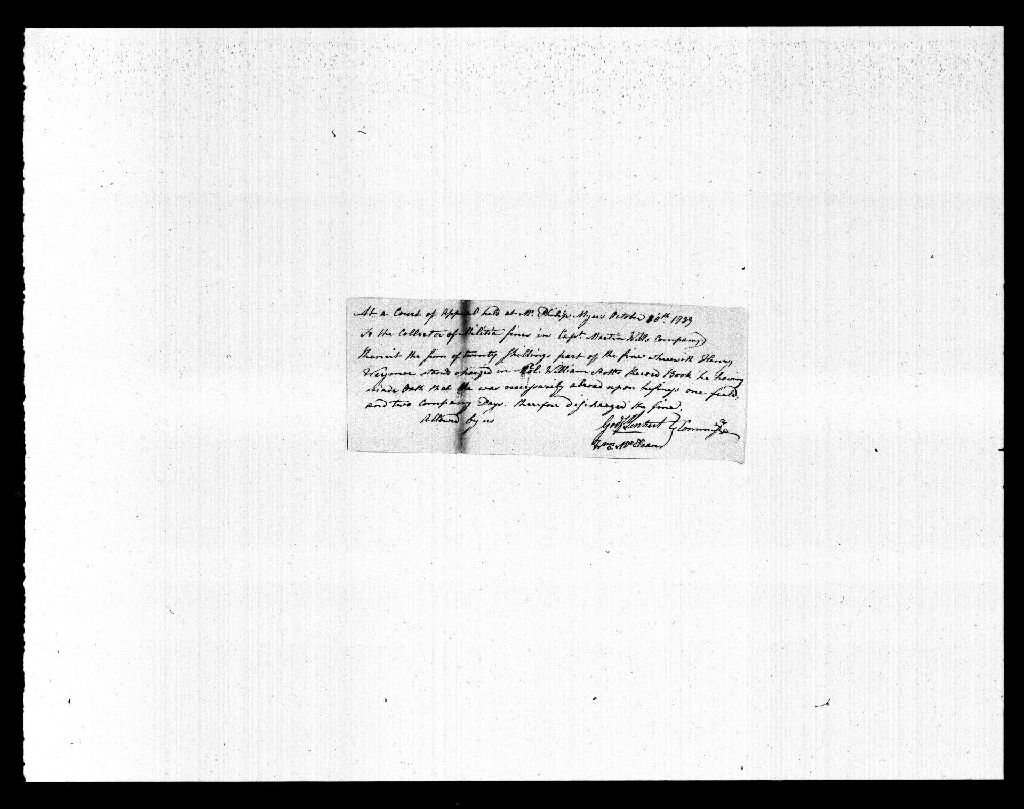 At a Court of Appeal held at Mr. Philip Myers October 16th 1789
To the Collector of Militia fines in Capt. Martin Wills Company
Remit the sum of twenty Shillings part of the fine wherewith Henry
stands charged in Col. William Scotts Record Book he having
made Oath that he was necessarily abroad upon business one field,
and two Company Days. therefore discharged the fine.
Allowed by us
Wm McClean